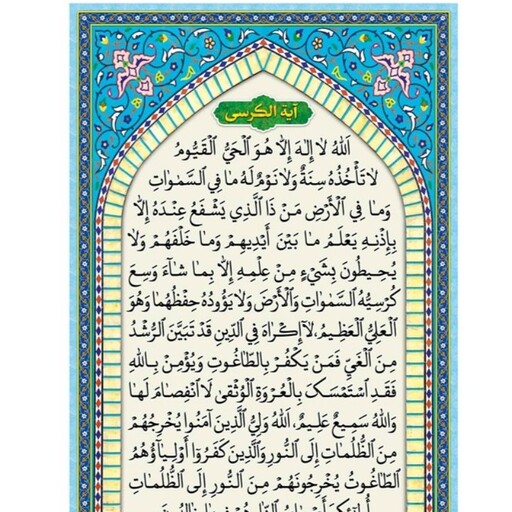 آية الكرسى
اَللهُ لا إِلهَ إِلاّ هُوَ الْحَيُّ الْقَيُّومُ
لا تَأْخُذُهُ سِنَةٌ وَلا نَوْمٌ لَهُ ما فِي السَّمٰواتِ
وَما فِي الْأَرْضِ مَنْ ذَا الَّذِي يَشْفَعُ عِنْدَهُ إِلاّ
بِإِذْنِهِ يَعْلَمُ ما بَيْنَ أَيْدِيهِمْ وَما خَلْفَهُمْ وَلا
يُحِيطُونَ بِشَيْءٍ مِنْ عِلْمِهِ إِلاّ بِما شاءَ وَسِعَ
كُرْسِيُّهُ السَّمٰواتِ وَالْأَرْضَ وَلا يَؤُودُهُ حِفْظُهُما وَهُوَ
الْعَلِيُّ الْعَظِيمُ، لا إِكْراهَ فِي الدِّينِ قَدْ تَبَيَّنَ الرُّشْدُ
مِنَ الْغَيِّ فَمَنْ يَكْفُرْ بِالطّاغُوتِ وَيُؤْمِنْ بِاللهِ
فَقَدِ اسْتَمْسَكَ بِالْعُرْوَةِ الْوُثْقىٰ لا انْفِصامَ لَها
وَاللهُ سَمِيعٌ عَلِيمٌ، اَللهُ وَلِيُّ الَّذِينَ آمَنُوا يُخْرِجُهُمْ
مِنَ الظُّلُماتِ إِلَى النُّورِ وَالَّذِينَ كَفَرُوا أَوْلِياؤُهُمُ
الطّاغُوتُ يُخْرِجُونَهُمْ مِنَ النُّورِ إِلَى الظُّلُماتِ